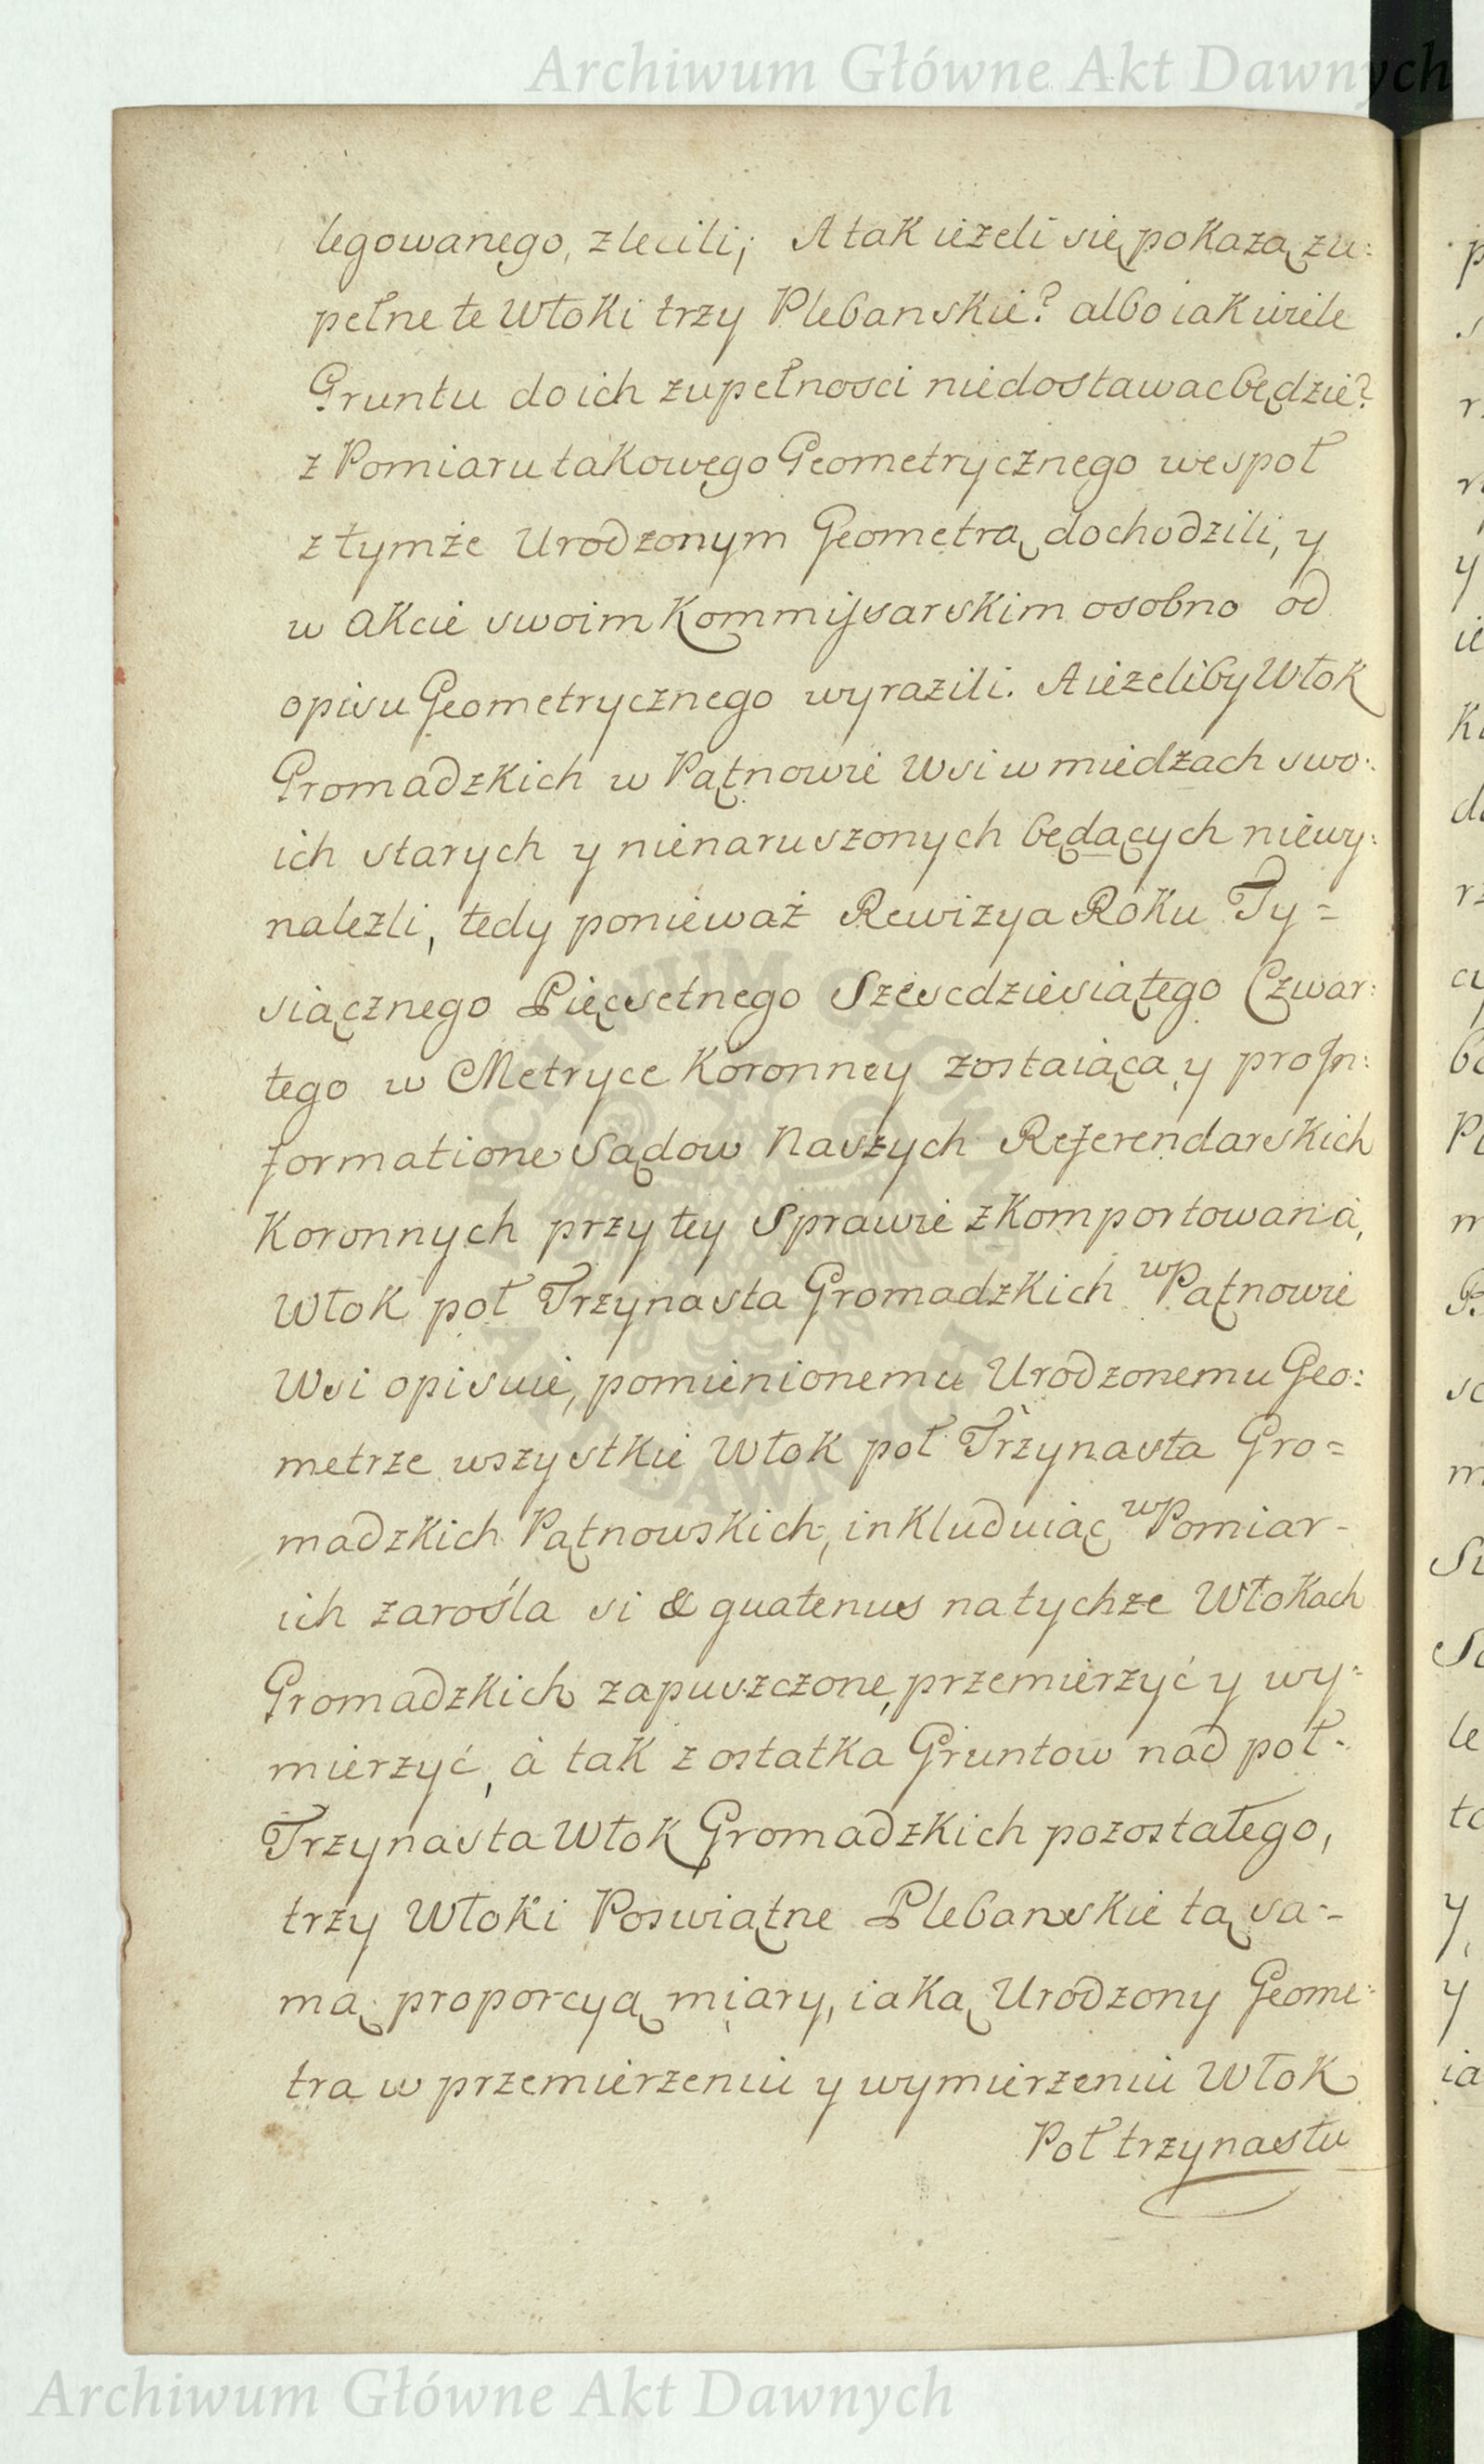 Archiwum Główne Akt Dawnych
legowanego, zlecili; A tak ieżeli się pokażą zu:
pełne te Włoki trzy Plebanskie? albo iak wiele
Gruntu do ich zupełnosci niedostawac będzie?
z Pomiaru takowego Geometrycznego wespoł
z tymże Urodzonym Geometrą dochodzili, y
w Akcie swoim Kommissarskim osobno od
opisu Geometrycznego wyrazili. A ieżeliby Włok
Gromadzkich w Pątnowie Wsi w miedzach swo:
ich starych y nienaruszonych będących niewy:
nalezli, tedy ponieważ Rewizya Roku Ty=
siącznego Pięcsetnego Szescdziesiątego Czwar:
tego w Metryce Koronney zostaiąca, y pro In:
formatione Sądow Naszych Referendarskich
Koronnych przy tey Sprawie zkomportowana,
Włok poł Trzynasta Gromadzkich w Pątnowie
Wsi opisuie, pomienionemu Urodzonemu Geo:
metrze wszystkie Włok poł Trzynasta Gro=
madzkich Pątnowskich, inkluduiąc w Pomiar-
ich zarośla si & quatenus na tychże Włokach
Gromadzkich zapuszczone, przemierzyć y wy:
mierzyć, à tak z ostatka Gruntow nad poł-
Trzynasta Włok Gromadzkich pozostałego,
trzy Włoki Poswiątne Plebanskie tą sa:-
mą proporcyą miary, iaką Urodzony Geome:
tra w przemierzeniu y wymierzeniu Włok
Poł trzynastu
Archiwum Główne Akt Dawnych